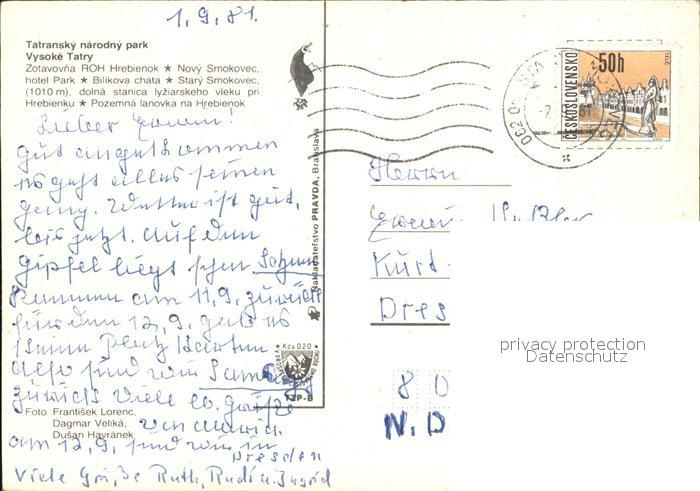 1.9.81.
Tatranský národný park
Vysoké Tatry
Zotavovňa ROH Hrebienok ★ Nový Smokovec,
hotel Park ★ Bilíkova chata ★ Starý Smokovec,
(1010 m), dolná stanica lyžiarskeho vleku pri
Hrebienku ★ Pozemná lanovka na Hrebienok
Lieber
Gut angekommen
es geht alles seinen
Gang. Wetter ist gut,
bis jetzt. Auf den
Gipfel liegt schon Schnee
Kommen am 11.9. zurück
für den 12.9. gab es
keine Platz Karten
Also sind wir Samstag
zurück Viele
von
am 12.9. sind wir in
Dresden
Viele Grüße Ruth, Rudi u. Ingrid
Foto František Lorenc,
Dagmar Veliká,
Dušan Havránek
Nakladateľstvo PRAVDA, Bratislava
Kčs 0,20
TZP-B
ČESKOSLOVENSKO
50h
062 0
Herrn
Kurt
Dres
8 0
N.D
privacy protection
Datenschutz